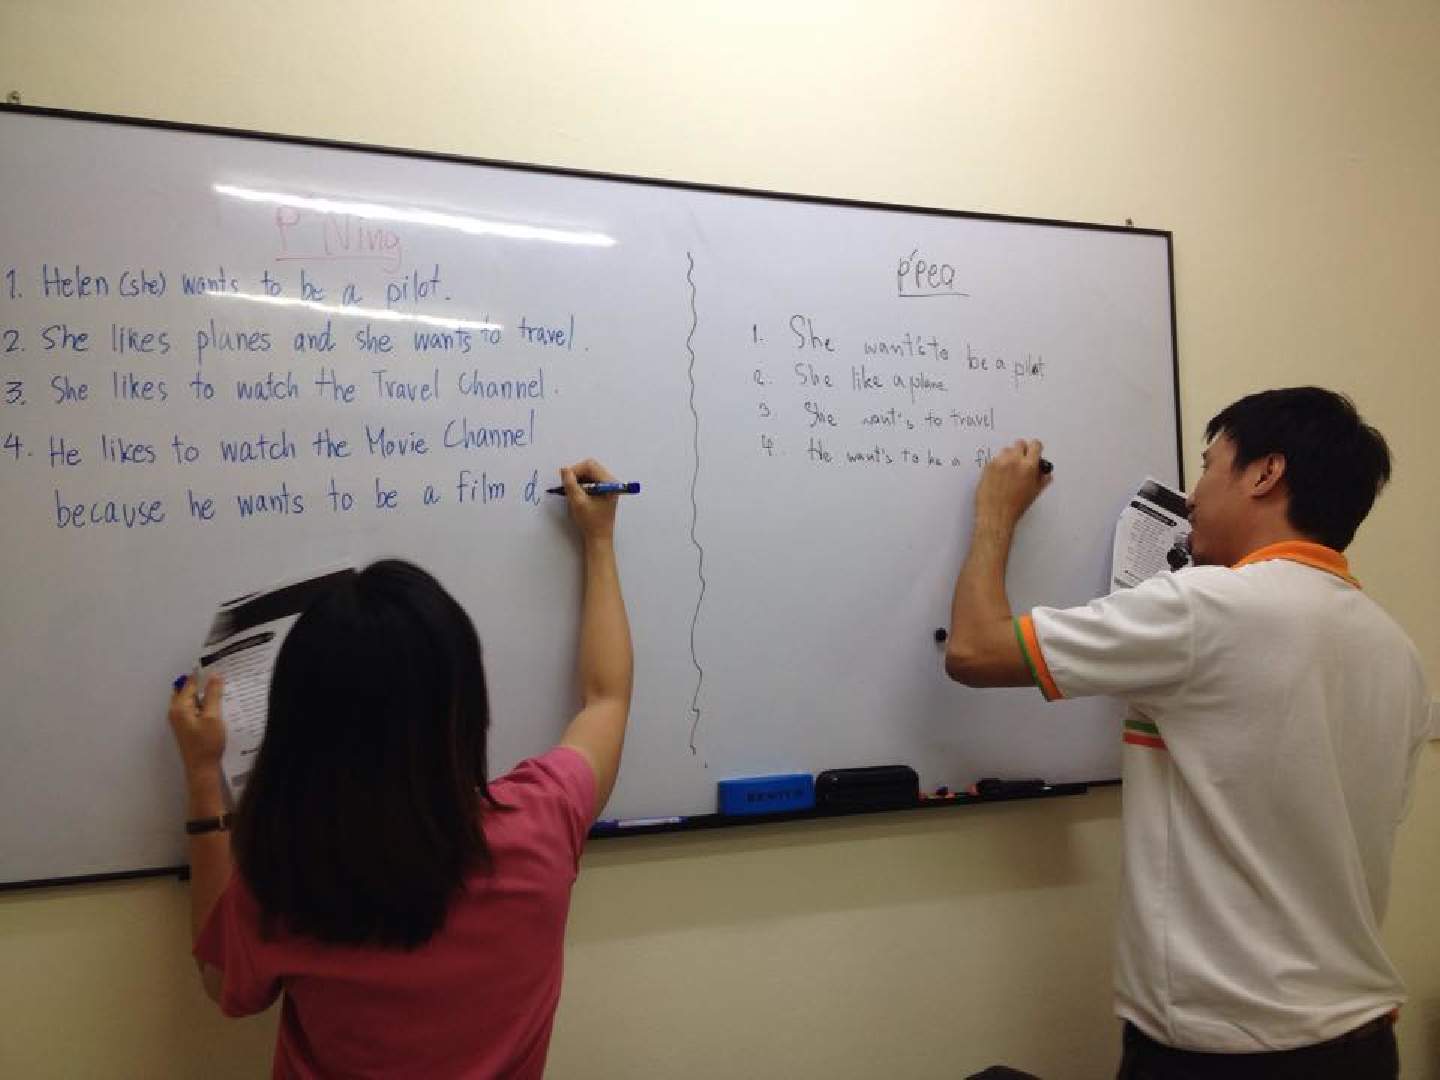 P'Ning
1. Helen (she) wants to be a pilot.
2. She likes planes and she wants to travel.
3. She likes to watch the Travel Channel.
4. He likes to watch the Movie Channel
because he wants to be a film d
P'Pea
1. She want's to be a pilot
2. She like a plane
3 She want's to travel
4. He want's to be a fil